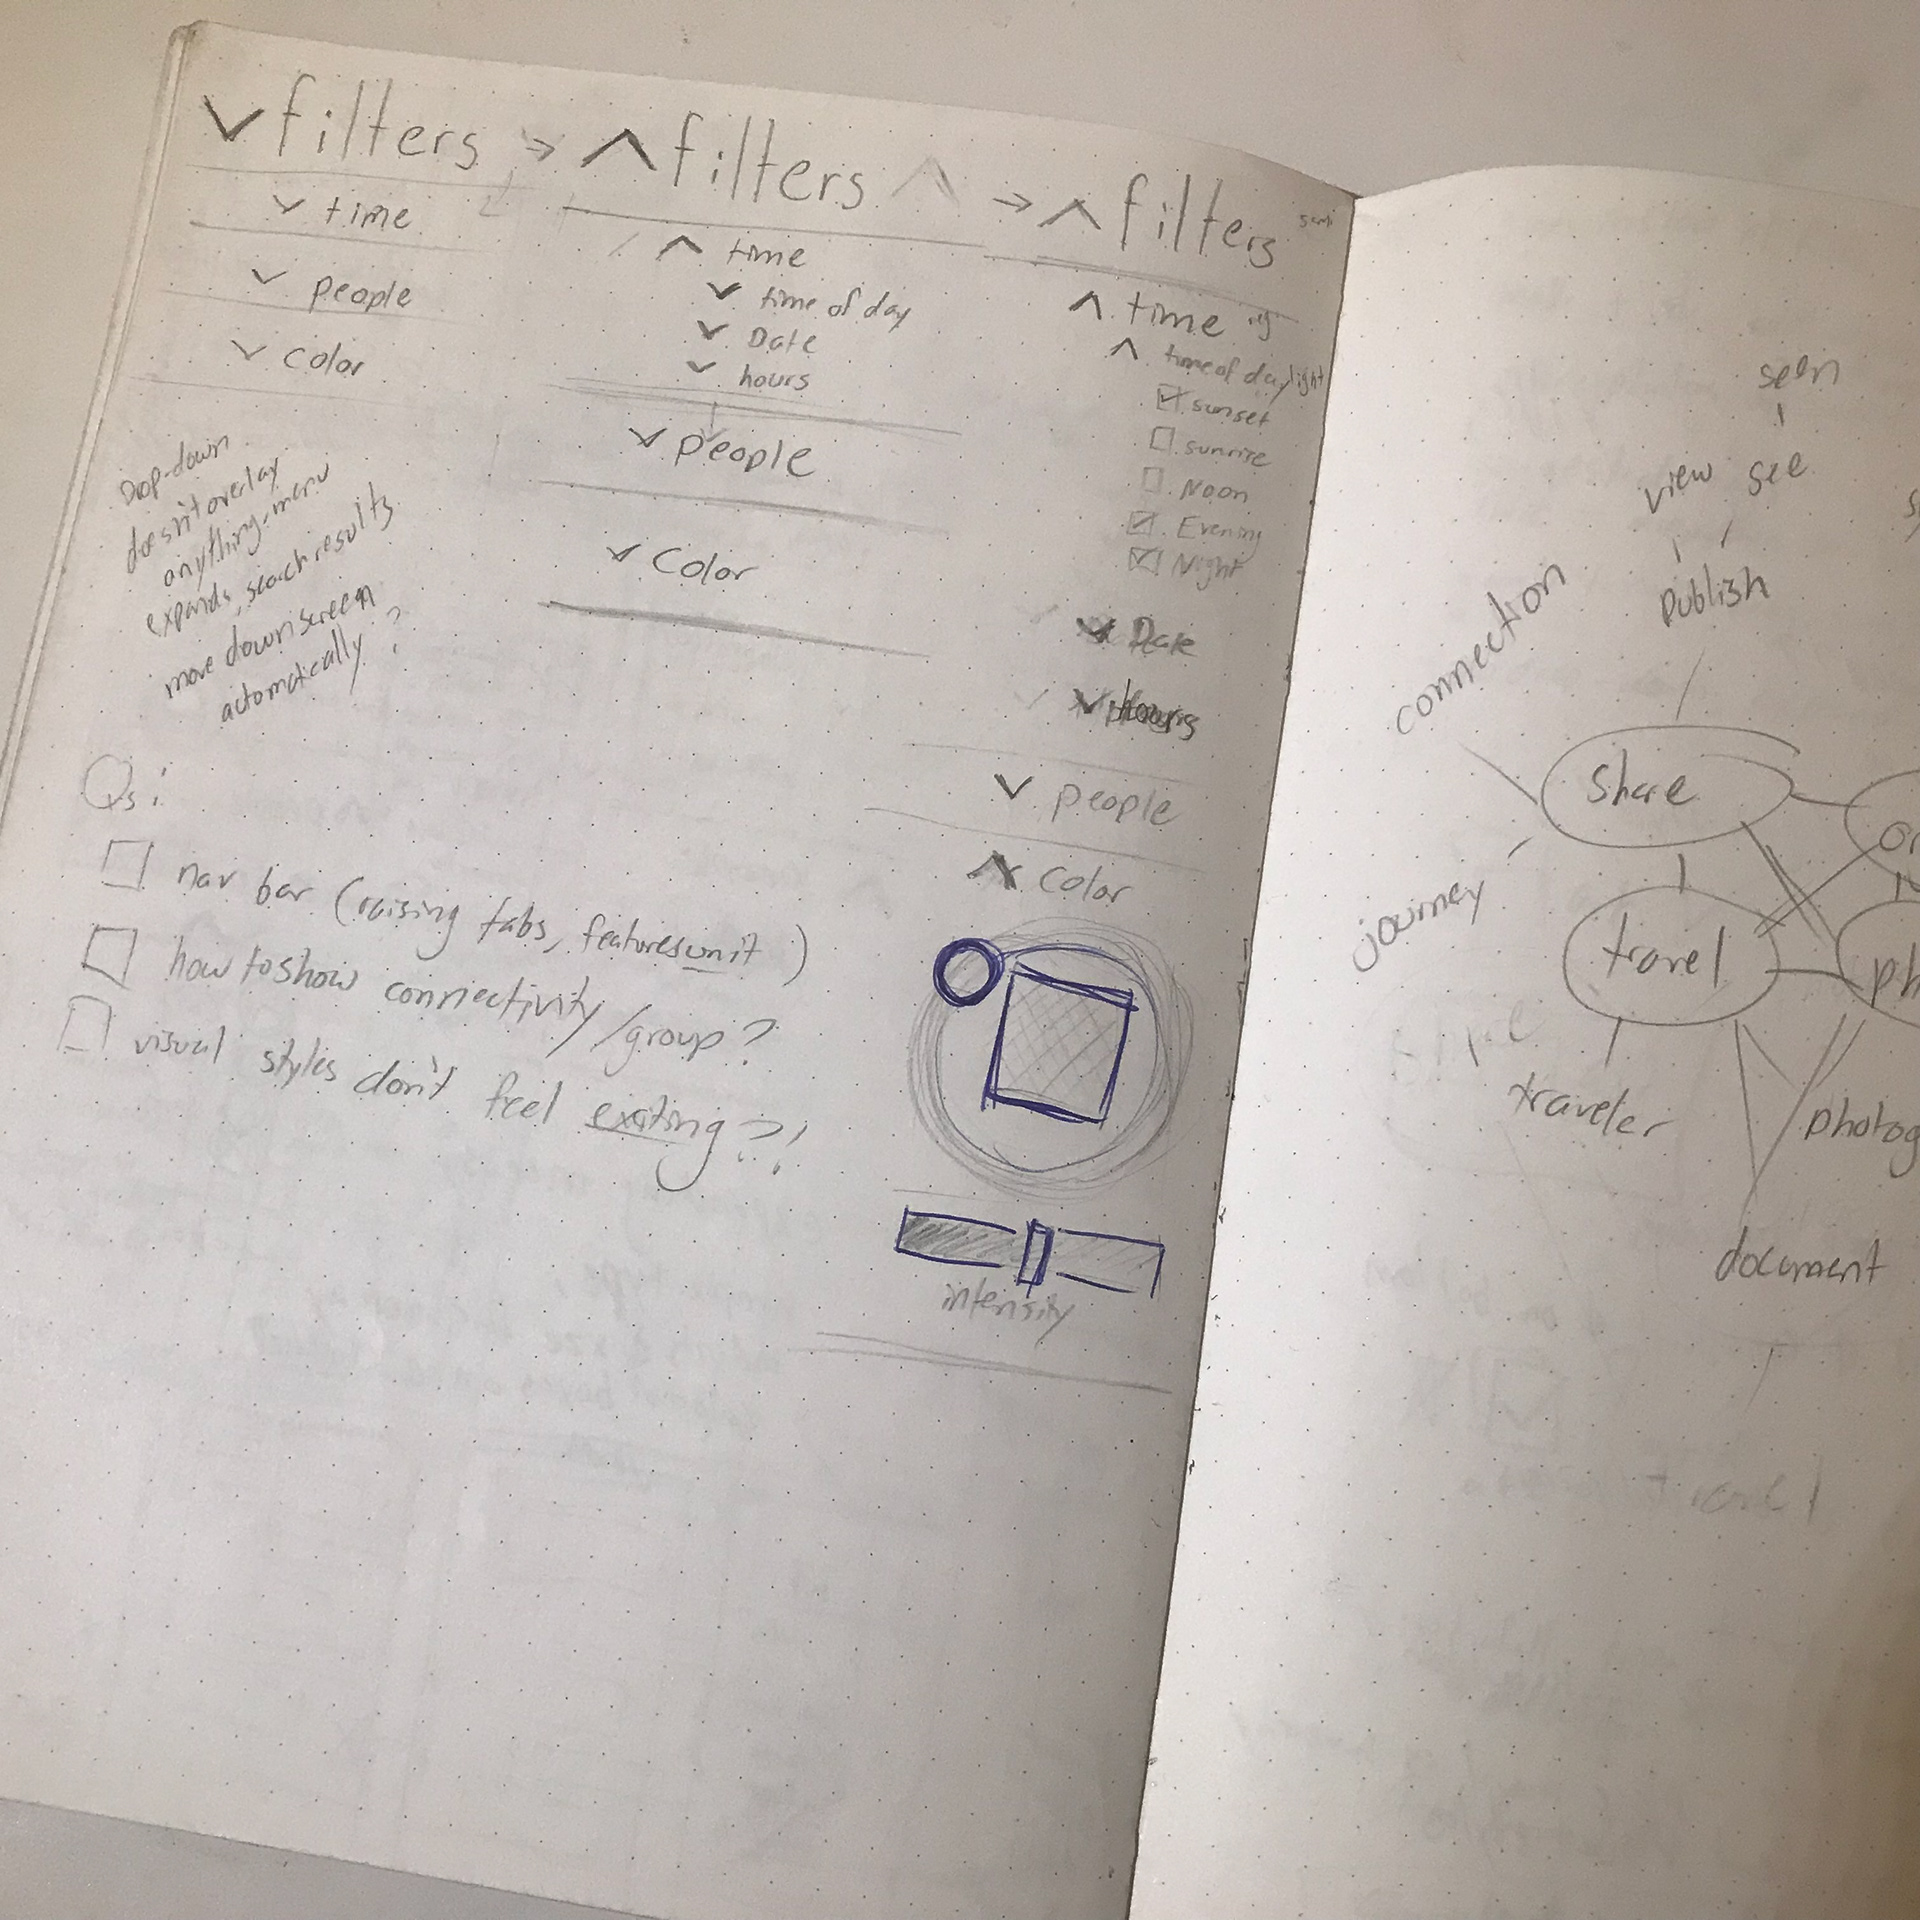 filters → filters → filters
time
people
color
Drop-down
doesn't overlay
anything, menu
expands, search results
move down screen
automatically?
time
time of day
Date
hours
people
Color
time
time of day light
sunset
sunrise
Noon
Evening
Night
Date
Hours
people
color
intensity
Qs:
nav bar (raising tabs, features unit)
how to show connectivity/group?
visual styles don't feel exiting?!
seen
view see
publish
connection
share
journey
travel
traveler
photog
document
travel